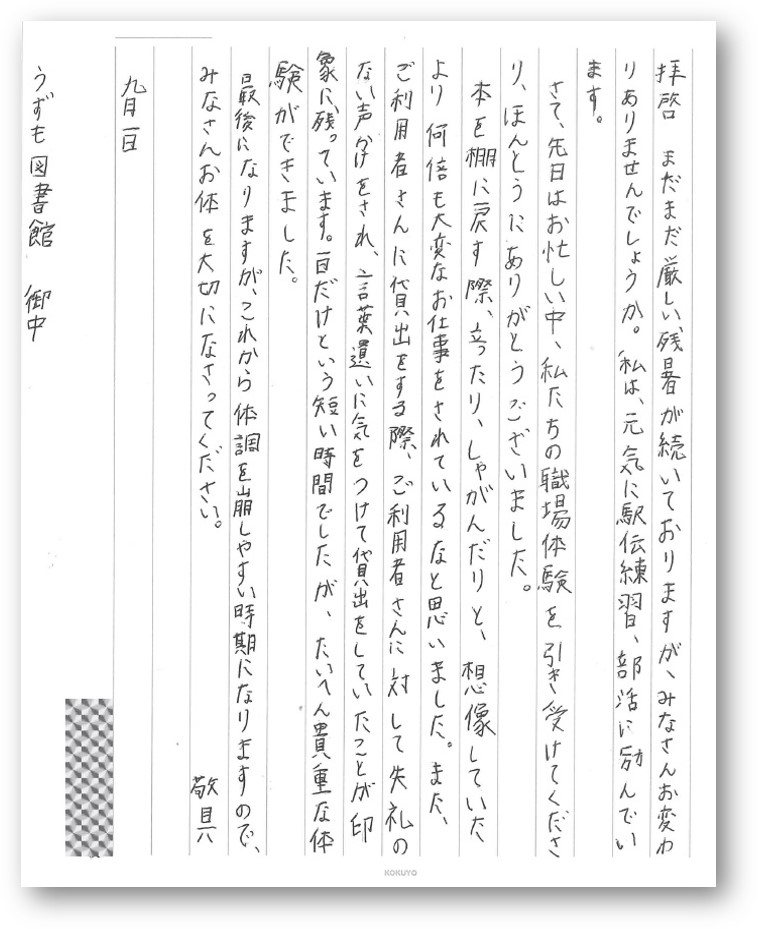 拝啓　まだまだ厳しい残暑が続いておりますが、みなさんお変わ
りありませんでしょうか。私は、元気に駅伝練習、部活に励んでい
ます。
さて、先日はお忙しい中、私たちの職場体験を引き受けてくださ
り、ほんとうにありがとうございました。
本を棚に戻す際、立ったり、しゃがんだりと、想像していた
より何倍も大変なお仕事をされているなと思いました。また、
ご利用者さんに貸出をする際、ご利用者さんに対して失礼の
ない声かけをされ、言葉遣いに気をつけて貸出をしていたことが印
象に残っています。一日だけという短い時間でしたが、たいへん貴重な体
験ができました。
最後になりますが、これから体調を崩しやすい時期になりますので、
みなさんお体を大切になさってください。
敬具
九月一日
うずも図書館　御中
KOKUYO